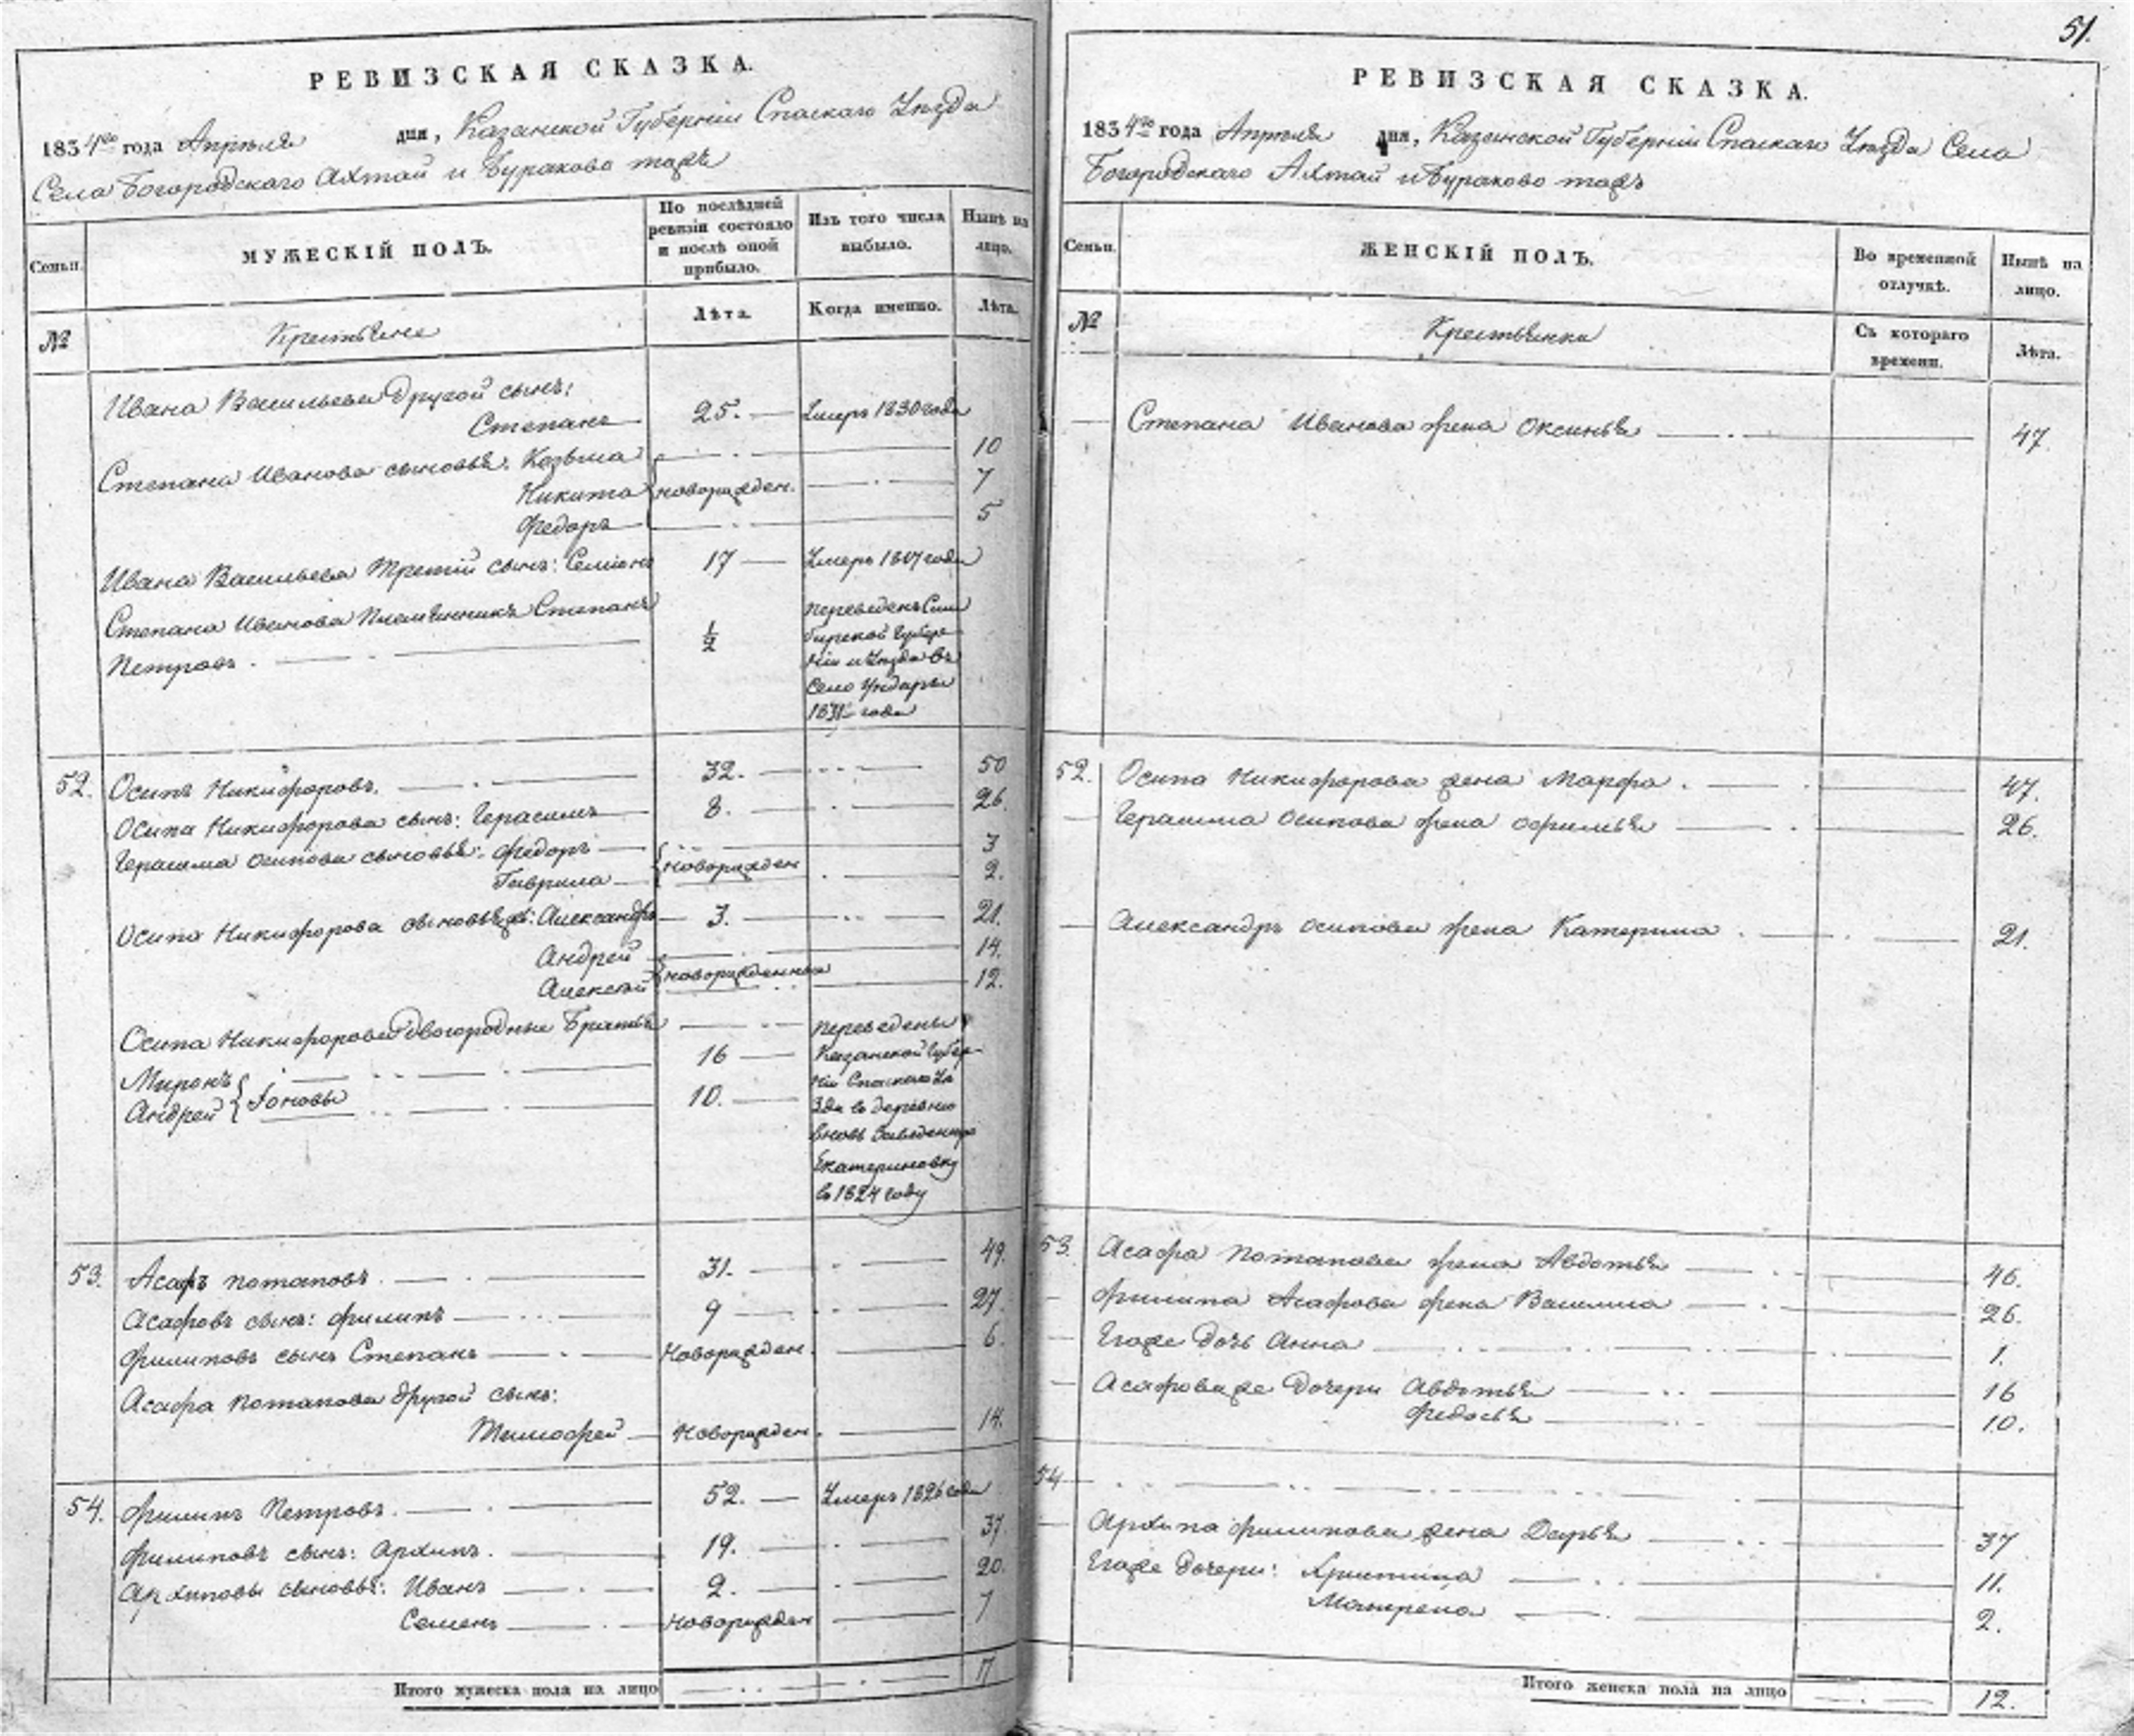 РЕВИЗСКАЯ СКАЗКА.
1834го года Апреля дня, Казанской Губерніи Спаскаго Уѣзда
Села Богородскаго Ахтай и Бураково тожъ
Семьи.
МУЖЕСКІЙ ПОЛЪ.
По послѣдней ревизіи состояло и послѣ оной прибыло.
Изъ того числа выбыло.
Нынѣ на лицо.
№
Крестьяне
Лѣта.
Когда именно.
Лѣта.
Ивана Васильева другой сынъ:
Степанъ 25. Умеръ 1830 года
Степана Иванова сыновья: Козьма 10
Никита новорожден. 7
Федоръ 5
Ивана Васильева третій сынъ: Семіонъ 17 Умеръ года
Степана Иванова племянникъ Степанъ
Петровъ. 1/2
переведенъ Сим
бирской Губер
ніи и Уѣзда въ
село Ундары
1831 года
52. Осипъ Никифоровъ. 32. 50
Осипа Никифорова сынъ: Герасимъ 8. 26.
Герасима Осипова сыновья: Федоръ 3
Гаврила новорожден 2.
Осипа Никифорова сыновья же: Александръ 3. 21.
Андрей 14.
Алексѣй новорожденные 12.
Осипа Никифорова двоюродные братья
Миронъ 16
Андрей Іоновы 10.
переведены
Казанской Губер
ніи Спаскаго Уѣ
зда въ деревню
вновь заведенную
Екатериновку
въ 1824 году
53. Асафъ Потаповъ. 31. 49.
Асафовъ сынъ: Филипъ 9 27.
Филиповъ сынъ Степанъ Новорожден. 6.
Асафа Потапова другой сынъ:
Тимофей Новорожден. 14.
54. Филипъ Петровъ. 52. Умеръ 1826 года
Филиповъ сынъ: Архипъ. 19. 37
Архиповы сыновья: Иванъ 2. 20.
Семенъ Новорожден 7
Итого мужеска пола на лицо 17
51.
РЕВИЗСКАЯ СКАЗКА.
1834го года Апреля дня, Казанской Губерніи Спаскаго Уѣзда Села
Богородскаго Ахтай и Бураково тожъ
Семьи.
ЖЕНСКІЙ ПОЛЪ.
Во временной отлучкѣ.
Нынѣ на лицо.
№
Крестьянки
Съ котораго времени.
Лѣта.
Степана Иванова жена Оксинья 47.
52. Осипа Никифорова жена Марфа. 47.
Герасима Осипова жена Офимья 26.
Александръ Осипова жена Катерина. 21.
53. Асафа Потапова жена Авдотья 46.
Филипа Асафова жена Василиса 26.
Егоже дочь Анна 1.
Асафова же дочери Авдотья 16
Федосья 10.
54
Архипа Филипова жена Дарья 37
Егоже дочери: Христина 11.
Матрена 2.
Итого женска пола на лицо 12.